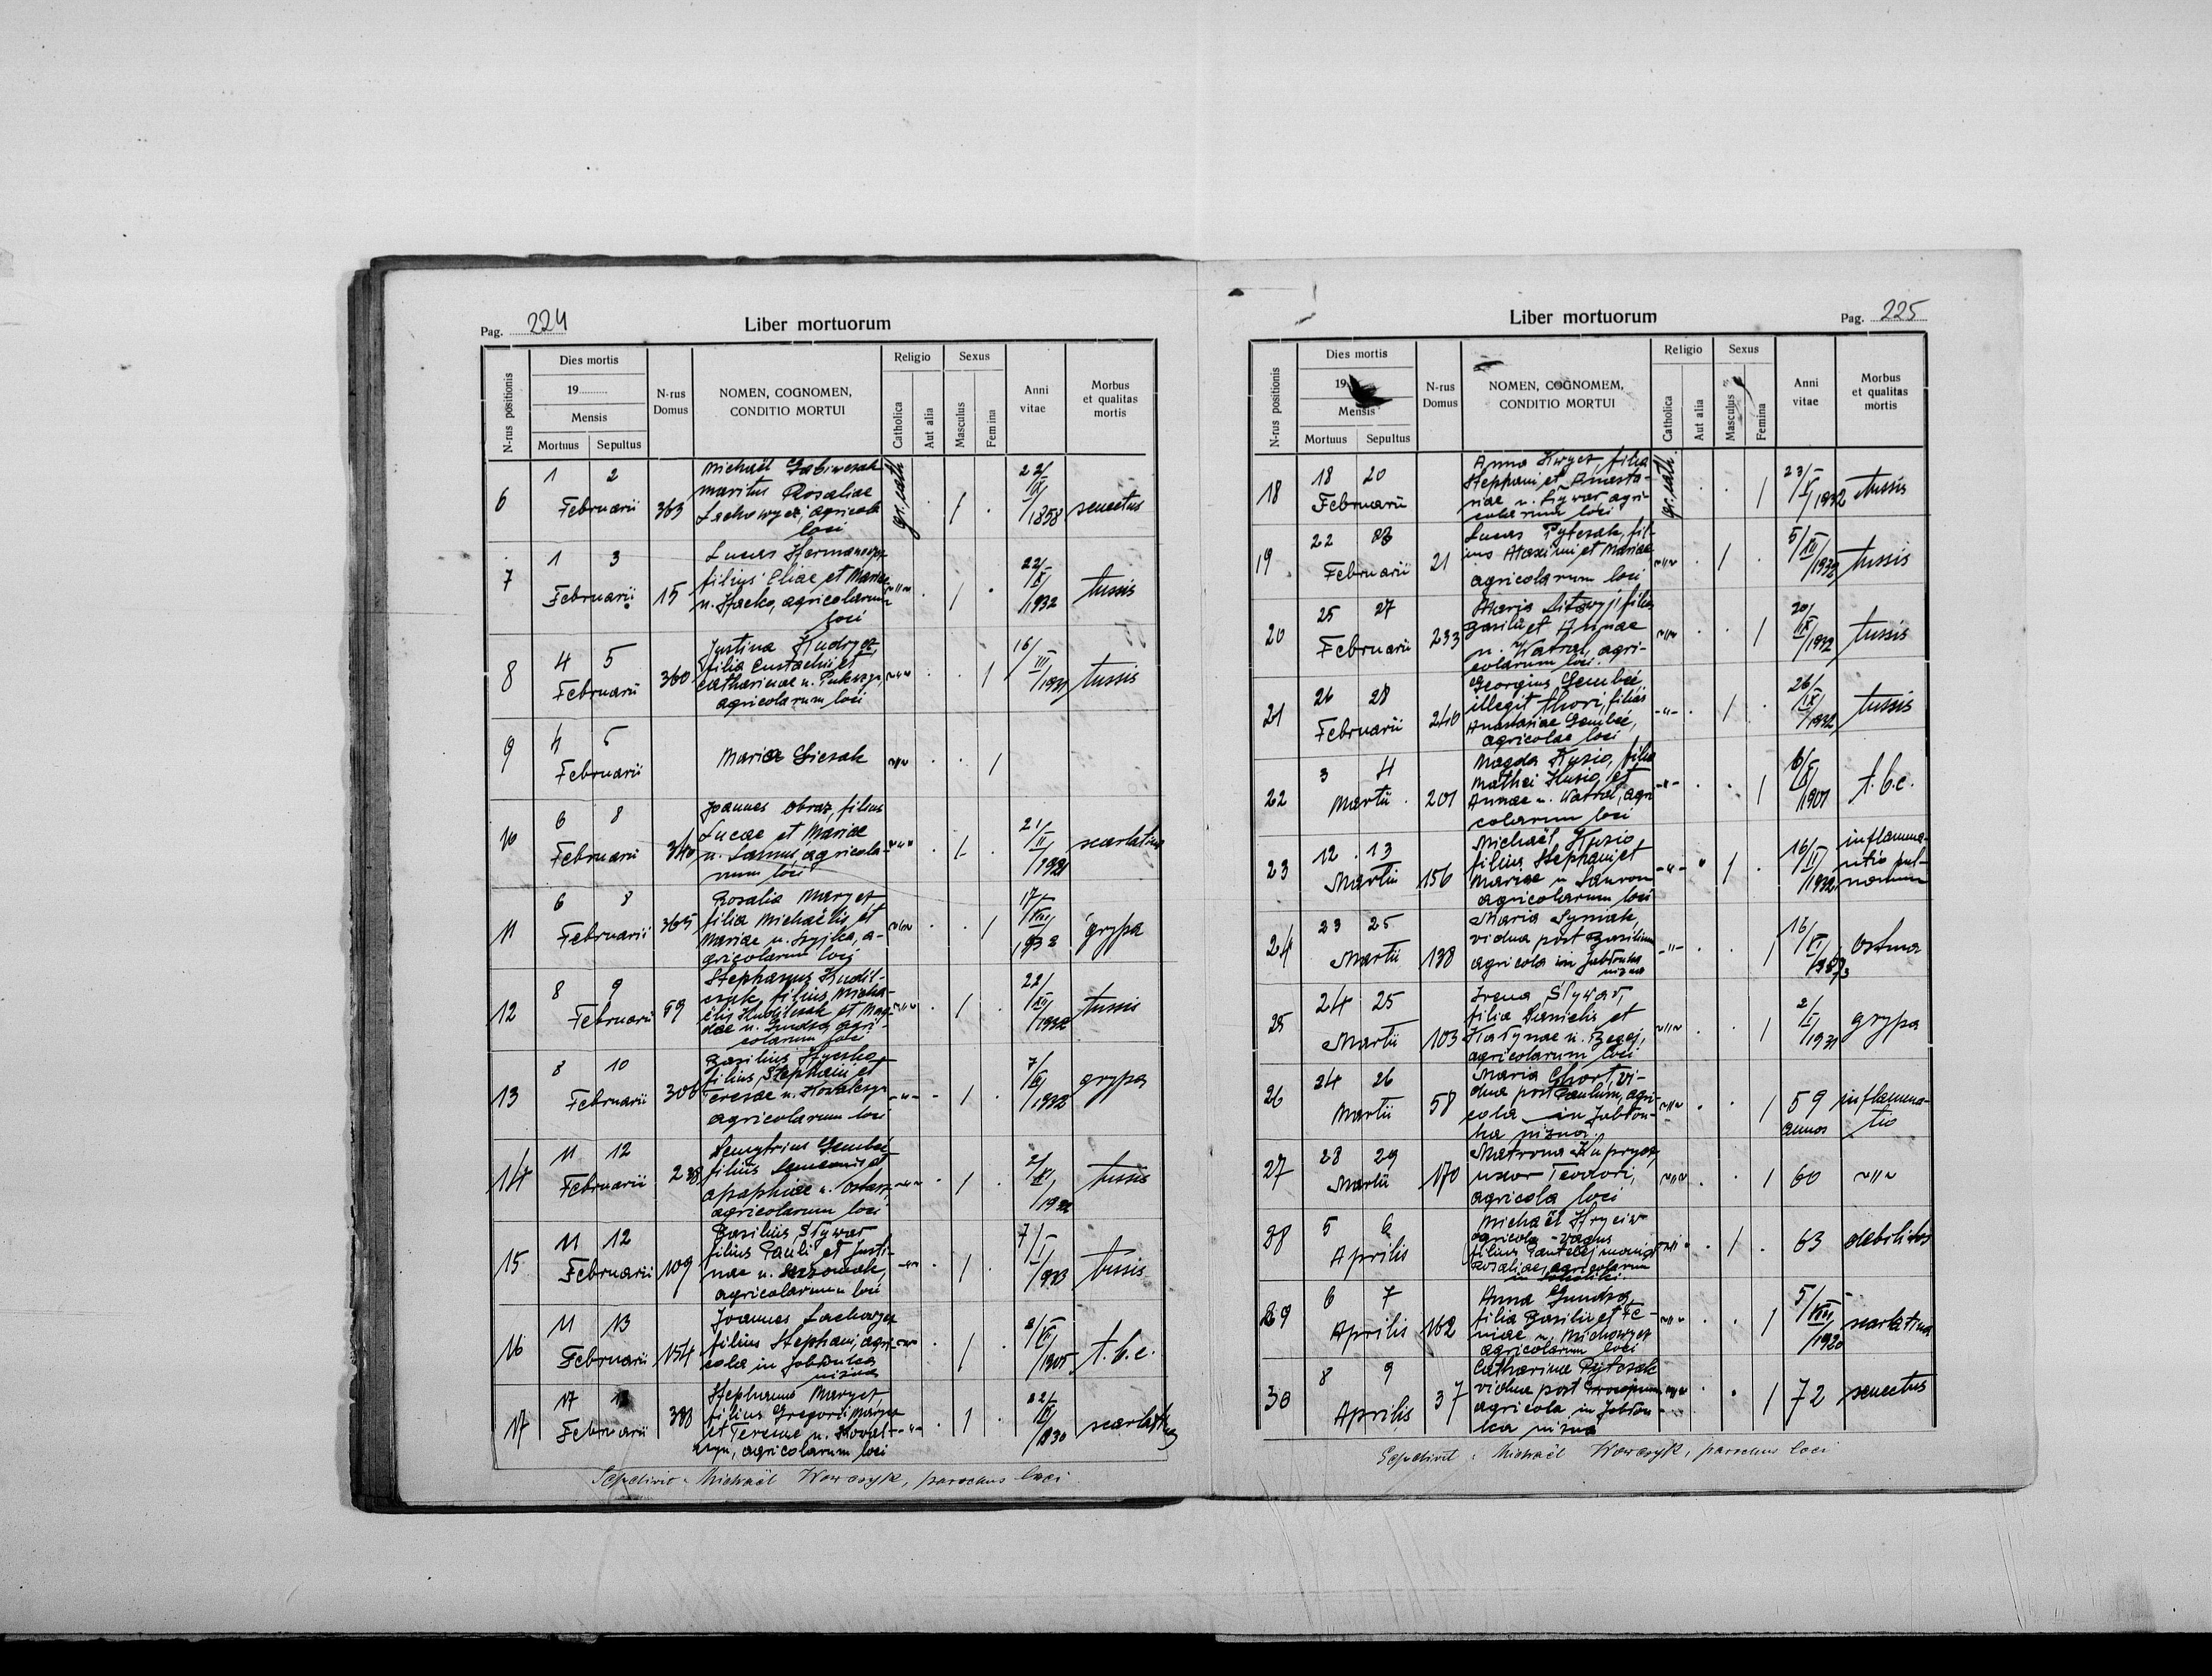 Pag. 224
Liber mortuorum
N-rus positionis
Dies mortis
19
Mensis
Mortuus Sepultus
N-rus Domus
NOMEN, COGNOMEN,
CONDITIO MORTUI
Religio
Catholica
Aut alia
Sexus
Masculus
Femina
Anni vitae
Morbus
et qualitas
mortis
6 1 2 Februarii 363
Michaël
maritus Rosaliae
Lachowycz, agricola
loci
gr. cath. 22/IX/1858 senectus
7 1 3 Februarii 15
Lucas
filius Eliae et Mariae
n. Hacko, agricolarum
loci
22/X/1932 tussis
8 4 5 Februarii 360
Justina Kudrycz,
filia Eustachii et
Catharinae n.
agricolarum loci
16/III/1931 tussis
9 4 5 Februarii
Maria
10 6 8 Februarii 340
Joannes Obraz, filius
Lucae et Mariae
n. agricola-
rum loci
21/II/1921 scarlatina
11 6 8 Februarii 365
Rosalia Marycz
filia Michaëlis et
Mariae n. a-
gricolarum loci
17/XII/1932 grypa
12 8 9 Februarii 69
Stephanus Kudil-
czak, filius Micha-
ëlis Kudilczak et Mag-
dae n. Gundza agri-
colarum loci
22/XII/1932 tussis
13 8 10 Februarii 306
Basilius Hyczko
filius Stephani et
Teresae n. Kowalczyn
agricolarum loci
1932 grypa
14 11 12 Februarii 238
Demytrius Gembei
filius et
n.
agricolarum loci
2/XI/1932 tussis
15 11 12 Februarii 109
Basilius Slywar
filius Pauli et Justi-
nae n.
agricolarum loci
7/I/1933 tussis
16 11 13 Februarii 154
Joannes Lachowycz
filius Stephani, agri-
cola in Jablonka
nizna
1905 t. b. c.
17 17 Februarii
Stephanus Marycz
filius Gregorii Marycz
et Teresae n. Kowal-
czyn, agricolarum loci
1930 scarlatina
Sepelivit: Michaël Wowczyk, parochus loci
Liber mortuorum
Pag. 225
N-rus positionis
Dies mortis
19
Mensis
Mortuus Sepultus
N-rus Domus
NOMEN, COGNOMEM,
CONDITIO MORTUI
Religio
Catholica
Aut alia
Sexus
Masculus
Femina
Anni vitae
Morbus
et qualitas
mortis
18 18 20 Februarii
Anna filia
Stephani et Anasta-
siae n. agri-
colarum loci
gr. cath. 23/X/1932 tussis
19 22 23 Februarii 21
Lucas Pytczak, fil-
ius Maximi et Mariae
agricolarum loci
5/XII/1932 tussis
20 25 27 Februarii 233
Maria filia
Basilii et Annae
n. Watral, agri-
colarum loci.
20/IX/1932 tussis
21 26 28 Februarii 240
Georgius Gembei
illegit thori, filius
Anastasiae Gembei,
agricolae loci
26/IX/1932 tussis
22 3 4 Martii 201
Magda Kusio, filia
Mathei Kusio et
Annae n. Watral, agri
colarum loci
6/X/1901 t. b. c.
23 12 13 Martii 156
Michaël Kusio
filius Stephani et
Mariae n.
agricolarum loci
16/II/1932 inflamma-
pul-
24 23 25 Martii 138
Maria Syniak,
vidua post Basilium
agricola in Jablonka
nizna
16/VI astma
25 24 25 Martii 103
Irena Slywar,
filia Danielis et
n. Begej,
agricolarum loci
2/I/1931 grypa
26 24 26 Martii 58
Maria Chort, vi-
dua post Paulum, agri
cola in Jablon-
ka nizna.
59 annos inflamma-
tio
27 28 29 Martii 170
Matrona Kuprycz
uxor Teodori,
agricola loci
60 ~"~
28 5 6 Aprilis
Michaël Hryciw
agricola - vagus
filius Pantelejmonis
Rosaliae, agricolarum
in
63 debilitas
29 6 7 Aprilis 162
Anna Gundza
filia Basilii et Te-
niae n. Michowycz
agricolarum loci
5/VIII/1920 scarlatina
30 8 9 Aprilis 37
Catharina Pytczak
vidua post Procopium
agricola in Jablon-
ka nizna
72 senectus
Sepelivit: Michaël Wowczyk, parochus loci